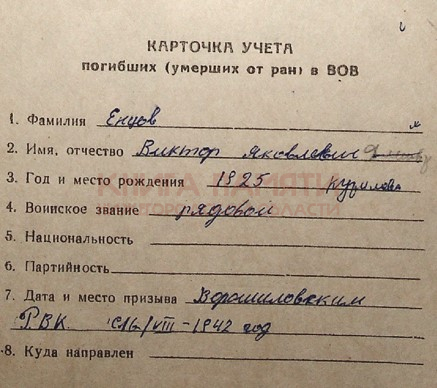 КАРТОЧКА УЧЕТА
погибших (умерших от ран) в ВОВ
1. Фамилия Енцов
2. Имя, отчество Виктор Яковлевич
3. Год и место рождения 1925 Курилова
КНИГА ПАМЯТИ
4. Воинское звание рядовой
ОБЛАСТИ
5. Национальность
6. Партийность
7. Дата и место призыва Ворошиловским
РВК 1942 год
8. Куда направлен